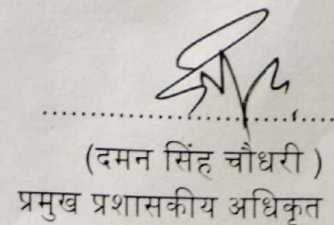 (दमन सिंह चौधरी )
प्रमुख प्रशासकीय अधिकृत